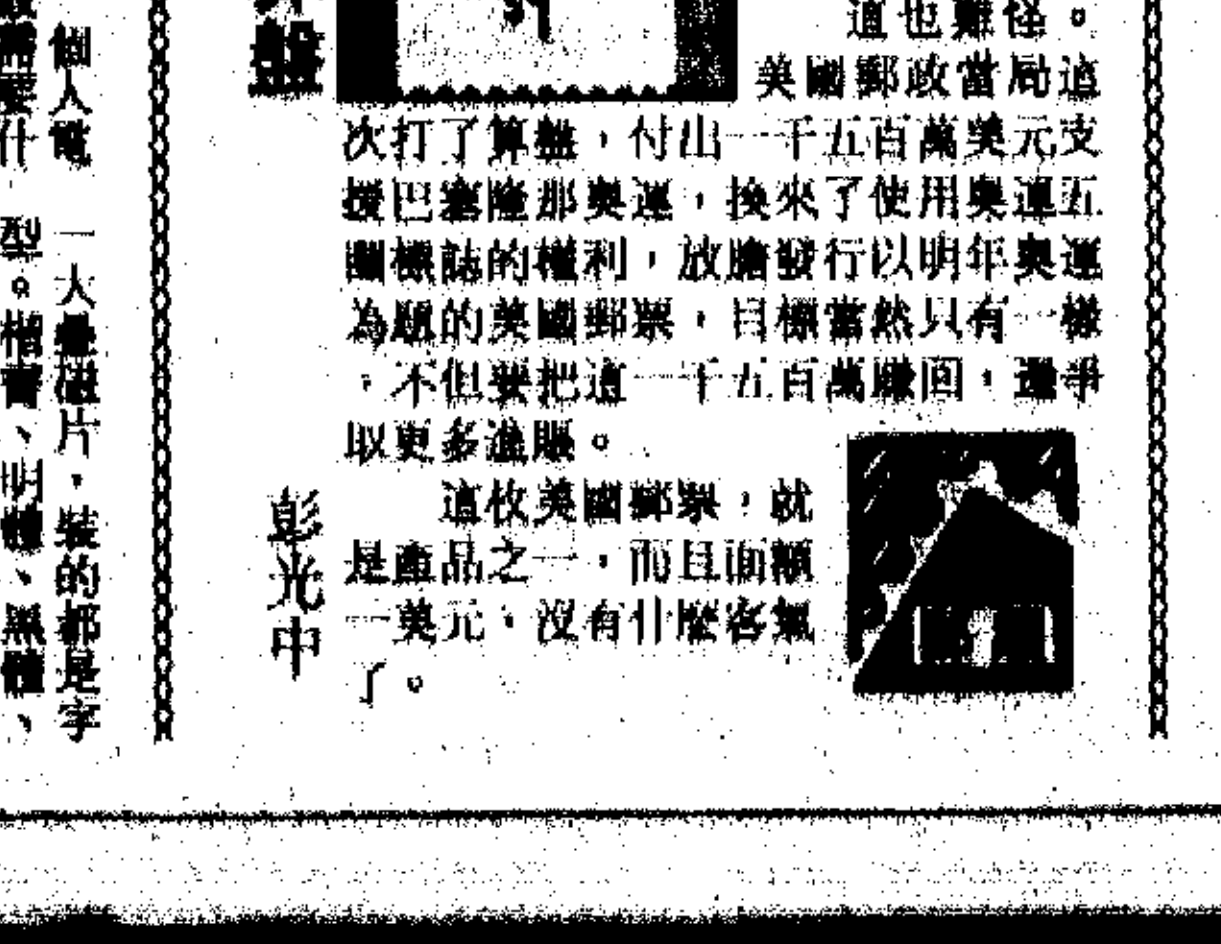 道也難怪。
美國郵政當局這
次打了算盤，付出一千五百萬美元支
援巴塞隆那奧運，換來了使用奧運五
圈標誌的權利，放膽發行以明年奧運
為題的美國郵票，目標當然只有一樣
，不但要把這一千五百萬賺回，還爭
取更多進賬。
這枚美國郵票，就
是產品之一，而且面額
一美元，沒有什麼客氣
了。
盤
彭光中
個人電
一大疊磁片，裝的都是字
什
型。楷書、明體、黑體、